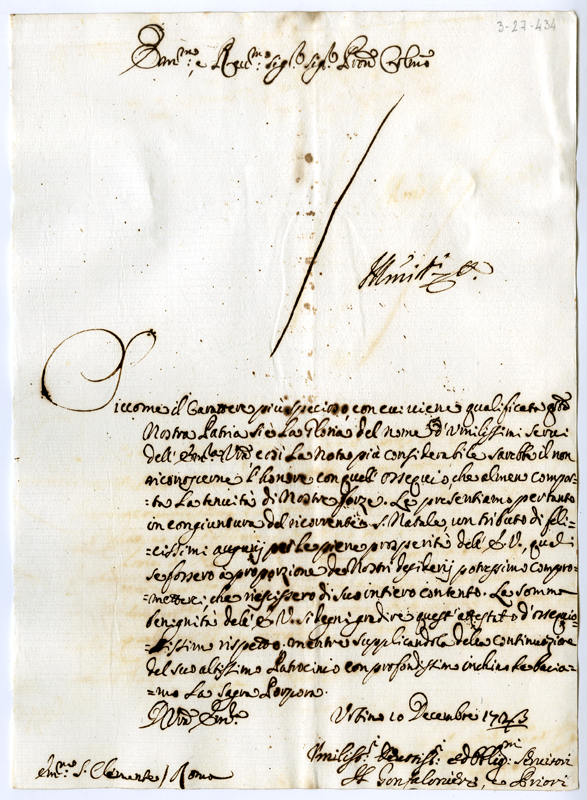 3-27-434
Em.mo e Rev.mo Sig.r Sig.r Pron Colmo
Siccome il Carattere più specioso, con cui viene qualificata q.sta
Nostra Patria si è La Gloria del nome d'Umilissimi servi
dell' Em.za V.ra e così La Nota più considerabile sarebbe il non
riconoscerne l'honore con quell' ossequio che almen compor-
:ta La tenuità di Nostre forze. Le presentiamo pertanto
in congiuntura del ricorrente S. Natale, un tributo di feli-
:cissimi augurij per le piene prosperità dell' E. V., quali
se fossero à proporzione de Nostri desiderij potressimo compro-
:mettere, che riescissero di suo intiero contento. La somma
benignità dell' E. V. si degni gradire quest' attestato d'ossequio-
:sissimo rispetto. mentre supplicandola della Continuazione
del suo altissimo Patrocinio con profondissimo inchino le bacia-
=mo La Sagra Porpora.
D. V.ra Em.za Urbino 10 Decembre 1723
Umiliss.i Devotiss.i ed Oblig.mi Servitori
Il Gonfaloniere, e Priori
Em.mo S. Clemente / Roma